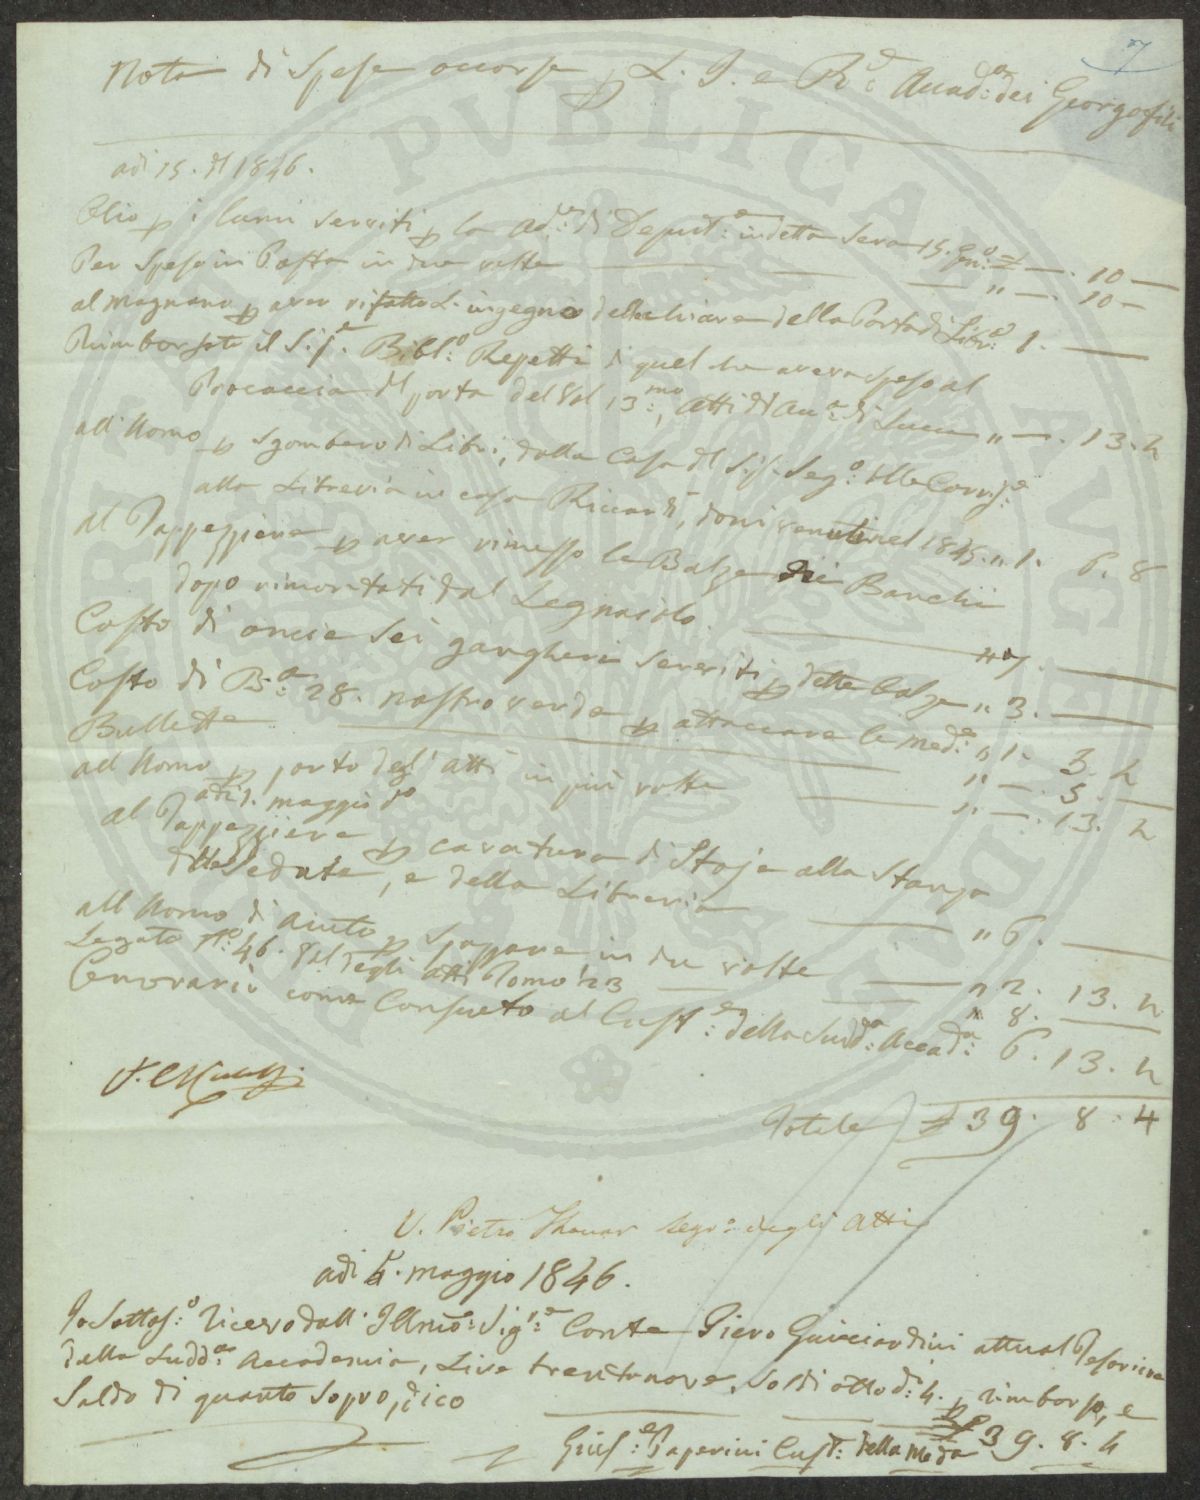 7
Nota di Spese occorse p L. I. e R.e Accad.a dei Georgofili
adi 15. dl 1846.
Olio p i lumi serviti p la ad.za di Deput.e in detta sera 15. Gen.o £ —. 10 —
Per Spago in Posta in due volte " —. 10 —
al magnano p aver rifatto L'ingegno della chiave della Porta di Libr.a 1. —
Rimborsato il Sig.r Bibl.o Repetti di quel che aveva speso al
Procaccia dl porto del Vol 13.mo, Atti dl Acc.a di Lucca " —. 13. 4
all'Uomo p sgombero di Libri, dalla Casa dl Sig. Seg.o dlle Corrisp.e
alla Libreria in casa Riccardi, doni venuti nel 1845. " 1. 6. 8
al Tappezziere p aver rimesso le Balze dei Banchi
dopo rimontati dal Legnaiolo. " 7. —
Costo di oncie sei gangheri serviti p dette balze " 3. —
Costo di B.a 28. nastro verde p attaccare le med.e " 1. 3. 4
Bullette " —. 5. —
all Uomo p porto degl'atti in più volte " —. 13. 4
adi 1. maggio do
al Tappezziere p cavatura di Stoje alla Stanza
dlle Sedute, e della Libreria " 6. —
all Uomo di aiuto p spazzare in due volte " 2. 13. 4
Legato N.o 46. Vol degli atti Tomo 23 " 8. —
Onorario come Consueto al Cust.e della Sudd.a Accad.a 6. 13. 4
Totale £ 39. 8. 4
V. Pietro Thouar Segr.o degli Atti
adi 5. maggio 1846.
Io Sottos.o ricevo dall'Illmo: Sig.re Conte Piero Guicciardini attual Tesoriere
della Sudd.a Accademia, Lire trentanove, Soldi otto d: 4. p rimborso, e
Saldo di quanto sopra, dico £ 39. 8. 4
Gius.e Paperini Cust.e della Meda